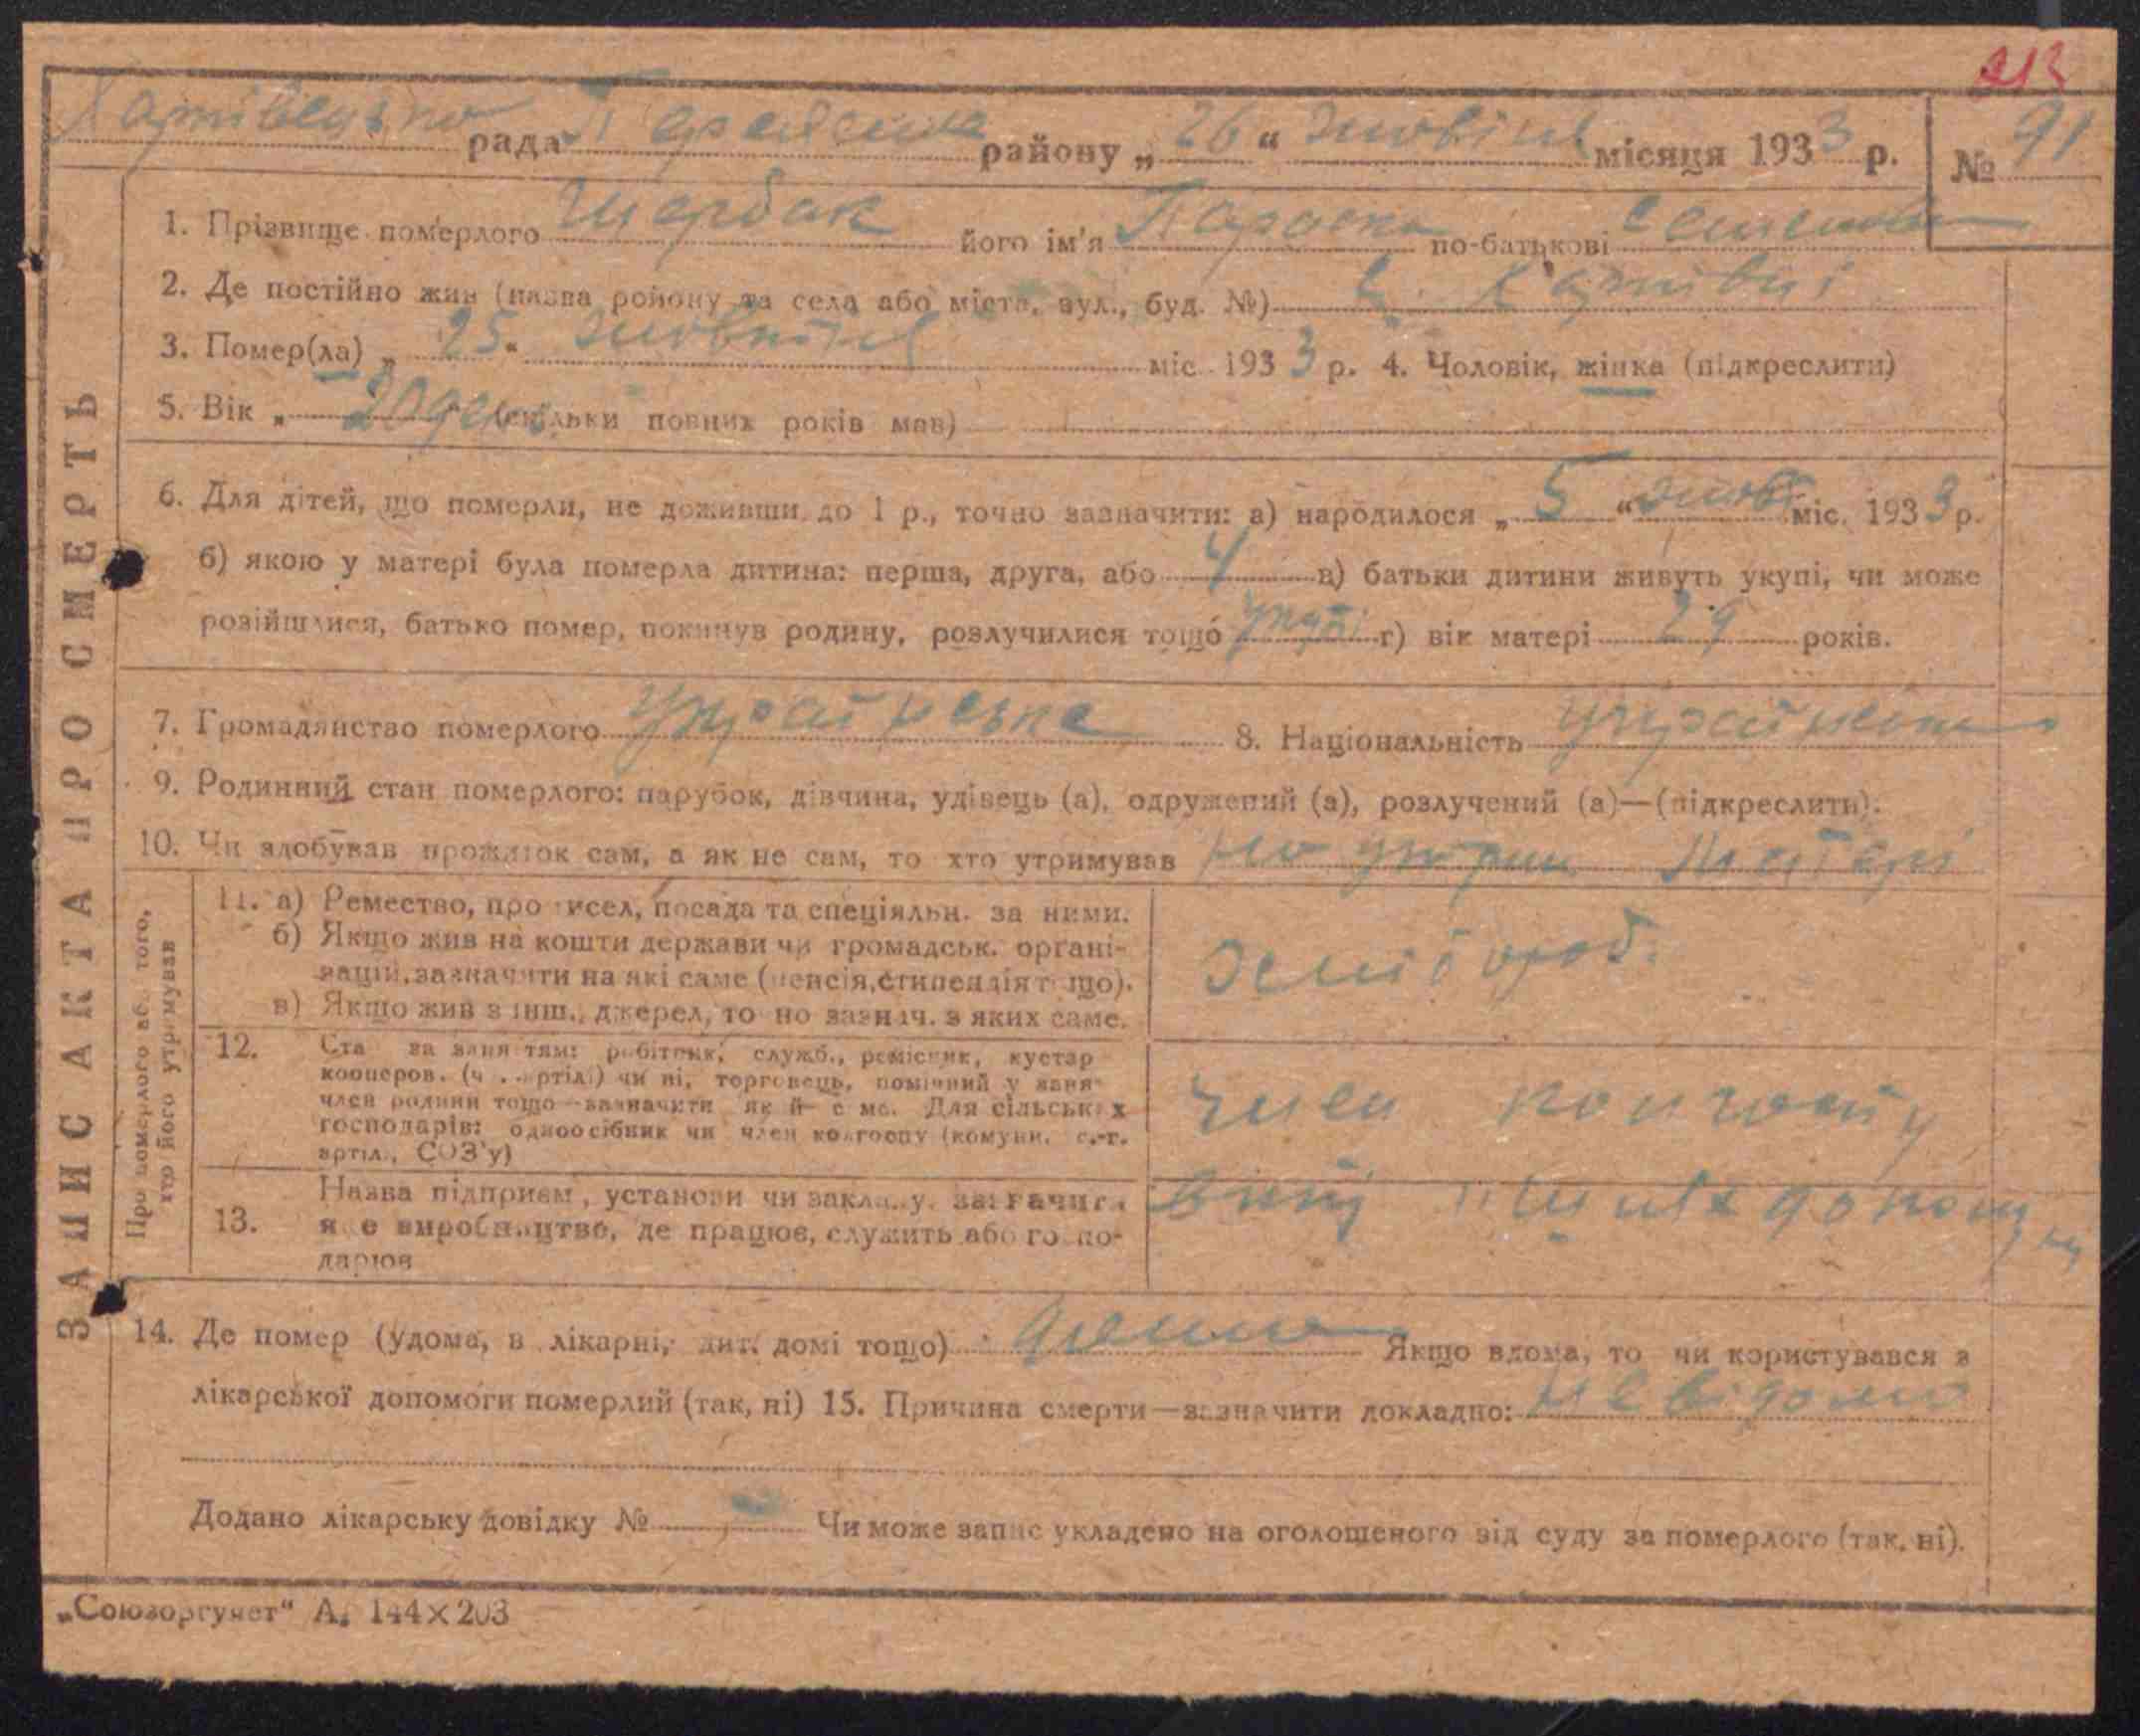 213
рада района району „ 26 “ жовтня місяця 1933 р. № 91
1. Прізвище померлого Щербак його ім'я Параска по-батькові Семенова
2. Де постійно жив (назва району та села або міста, вул., буд. №) с.
3. Помер(ла) „ 25 “ жовтня міс. 1933 р. 4. Чоловік, жінка (підкреслити)
5. Вік „ 20 ден. “ (скільки повних років мав)
6. Для дітей, що померли, не доживши до 1 р., точно зазначити: а) народилося „ 5 “ жовт міс. 1933 р.
б) якою у матері була померла дитина: перша, друга, або 4 в) батьки дитини живуть укупі, чи може
розійшлися, батько помер, покинув родину, розлучилися тощо укупі г) вік матері 29 років.
7. Громадянство померлого українське 8. Національність українка
9. Родинний стан померлого: парубок, дівчина, удівець (а), одружений (а), розлучений (а)—(підкреслити).
10. Чи здобував прожиток сам, а як не сам, то хто утримував на утрим матері
ЗАПИС АКТА ПРО СМЕРТЬ
Про померлого або того,
хто його утримував
11. а) Ремество, промисел, посада та спеціяльн. за ними.
б) Якщо жив на кошти держави чи громадськ. органі-
зацій, зазначити на які саме (пенсія, стипендія тощо).
в) Якщо жив з інш. джерел, то но зазнач. з яких саме.
хлібороб.
12. Ста за заняттям: робітник, служб., ремісник, кустар
кооперов. (ч артілі) чи ні, торговець, помічний у заня
член родини тощо—зазначити як й с ме. Для сільських
господарів: одноосібник чи член колгоспу (комуни, с.-г.
артіл., СОЗ'у)
член колгоспу
13. Назва підприєм., установи чи закладу, зазначит.
яке виробництво, де працює, служить або госпо-
дарює
14. Де помер (удома, в лікарні, дит. домі тощо) дома Якщо вдома, то чи користувався з
лікарської допомоги померлий (так, ні) 15. Причина смерти—зазначити докладно: невідомо
Додано лікарську довідку № Чи може запис укладено на оголошеного від суду за померлого (так, ні).
„Союзоргучет“ А₄ 144×203